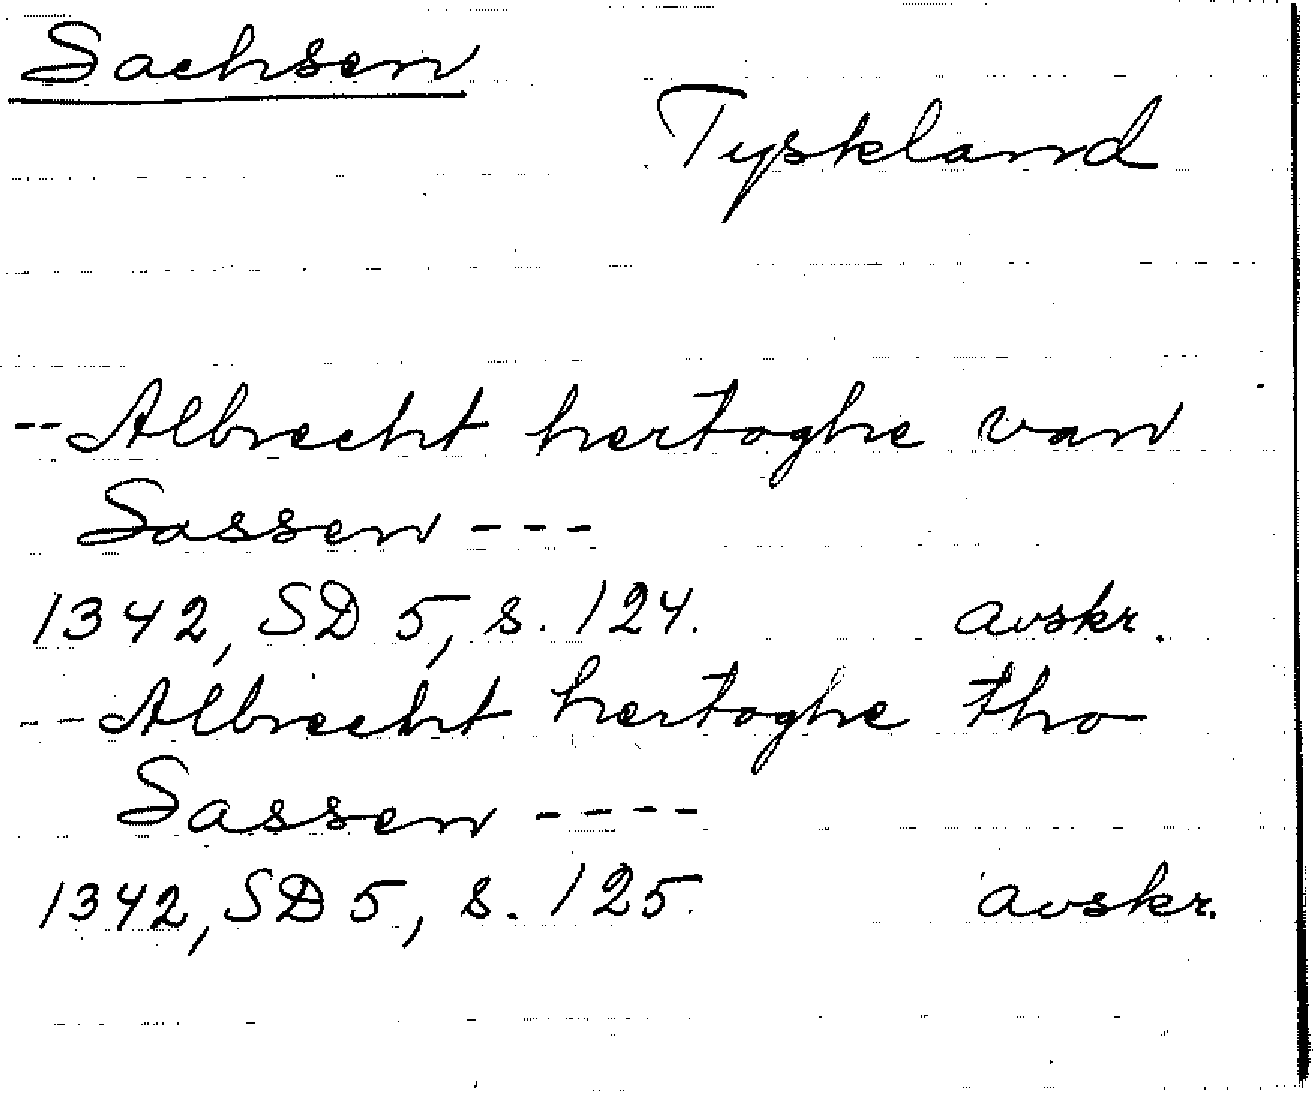 Sachsen
Tyskland
-- Albrecht hertoghe van
Sassen ---
1342, SD 5, s. 124. avskr.
-- Albrecht hertoghe tho
Sassen ----
1342, SD 5, s. 125. avskr.